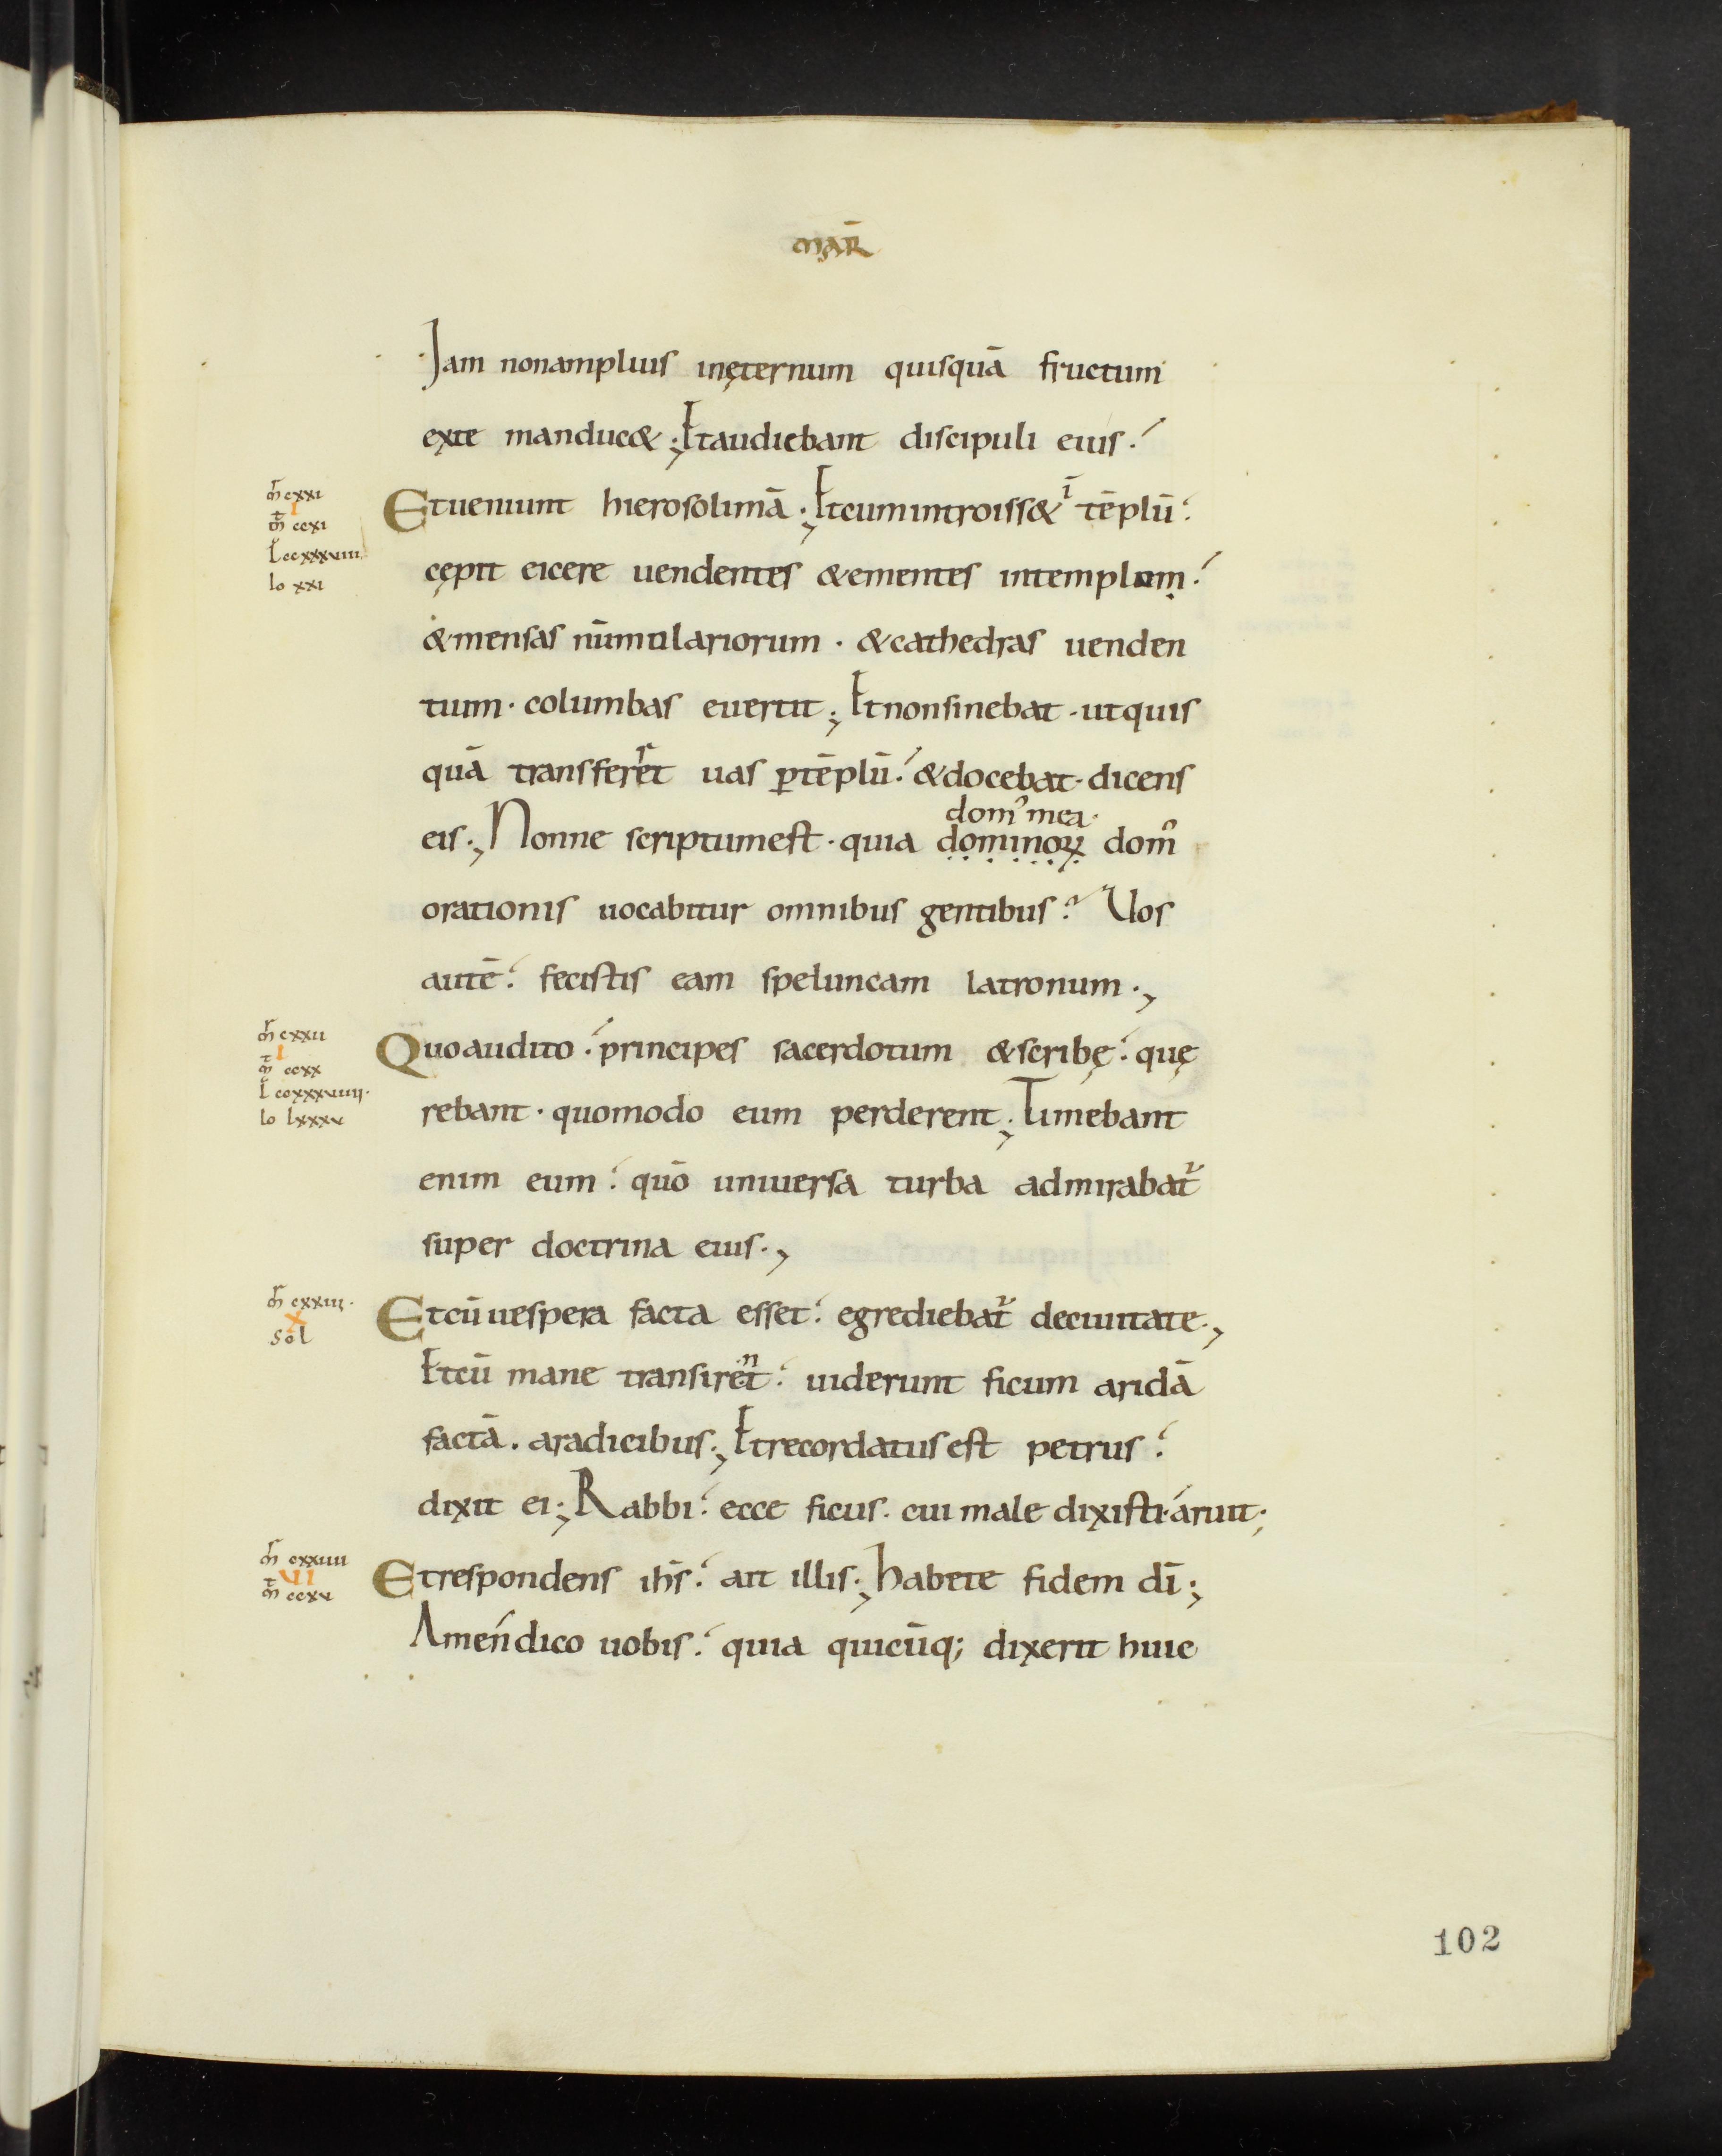 mar̄
Jam nonamplius inęternum quisquā fructum
exte manduc&;, Etaudiebant discipuli eius.
m̄r cxxi
i
m̄t ccxi
L ccxxxviii
Io xxi
Etueniunt hierosolimā., Etcumintroiss& ī tēplū.
cępit eicere uendentes &ementes intemplum.
&mensas nūmulariorum · &cathedras uenden
tium · columbas euertit., Etnonsinebat · utquis
quā transferret uas ꝑtēplū. &docebat · dicens
dom᾽ mea ·
eis., Nonne scriptumest · quia dominoꝝ dom᾽
orationis uocabitur omnibus gentibus? Uos
autē. fecistis eam speluncam latronum.,
m̄r cxxii
i
m̄t ccxx
L ccxxxviiii ·
Io lxxxv
Quoaudito. principes sacerdotum &scribę. quę
rebant · quomodo eum perderent., Timebant
enim eum. quō uniuersa turba admirabat᷑
super doctrina eius.,
m̄r cxxiii ·
x
sol
Etcū uespera facta esset. egrediebat᷑ deciuitate.,
Etcū mane transirent. uiderunt ficum aridā
factā. aradicibus., Etrecordatusest petrus.
dixit ei., Rabbi. ecce ficus. cui male dixisti · aruit;
m̄r cxxiiii
vi
m̄t ccxv
Etrespondens ih̄s. ait illis., habete fidem dī.,
Amen dico uobis. quia quicūq; dixerit huic
102